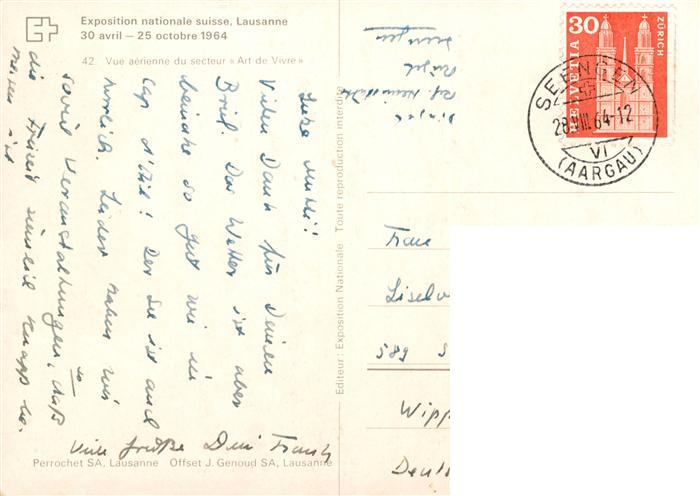 Exposition nationale suisse, Lausanne
30 avril — 25 octobre 1964
42. Vue aérienne du secteur « Art de Vivre »
Liebe Mutti!
Vielen Dank für Deinen
Brief. Das Wetter ist aber
beinahe so gut wie in
Cap d'Ail! Der See ist auch
herrlich. Leider haben wir
soviel Veranstaltungen, daß
die Freizeit ziemlich knapp be-
messen ist
Viele Grüße Dein Frank
Perrochet SA, Lausanne Offset J. Genoud SA, Lausanne
Editeur: Exposition Nationale Toute reproduction interdite
Seengen
30
HELVETIA
ZÜRICH
SEENGEN
28.VIII.64-12
VI
(AARGAU)
Frau
Liselo
589 S
Wipp
Deut